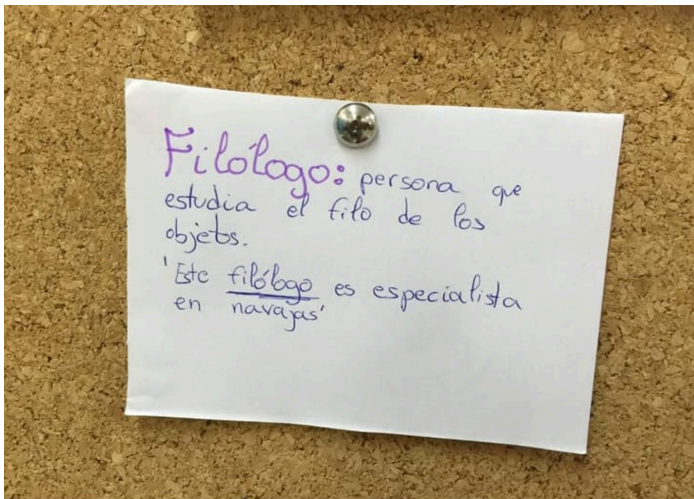 Filólogo: persona que
estudia el filo de los
objetos.
'Este filólogo es especialista
en navajas'